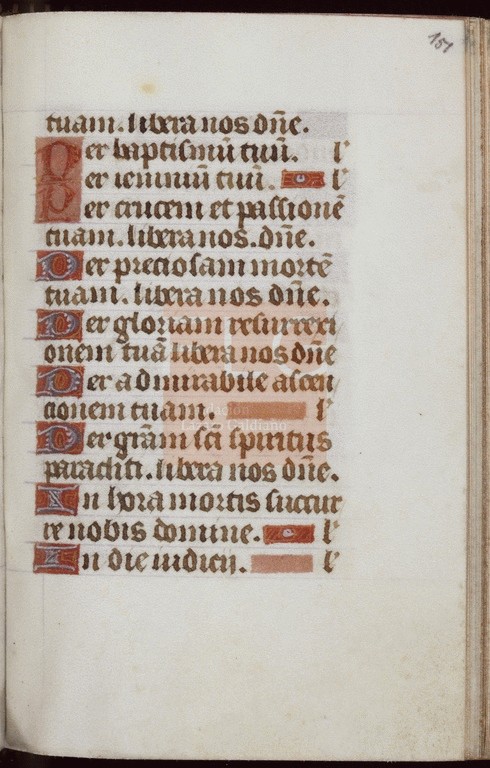 151
tuam. libera nos dñe.
Per baptismū tuū. l'
Per ieiuniū tuū. l'
Per crucem et passionē
tuam. libera nos. dñe.
Per preciosam mortē
tuam. libera nos dñe.
Per gloriam resurrexi
onem tuā libera nos dñe
Per admirabile ascen/
cionem tuam. l'
Per grām sci spiritus
paracliti. libera nos dñe.
In hora mortis succur
re nobis domine. l'
In die iudicij. l'
Fundación
Lázaro Galdiano